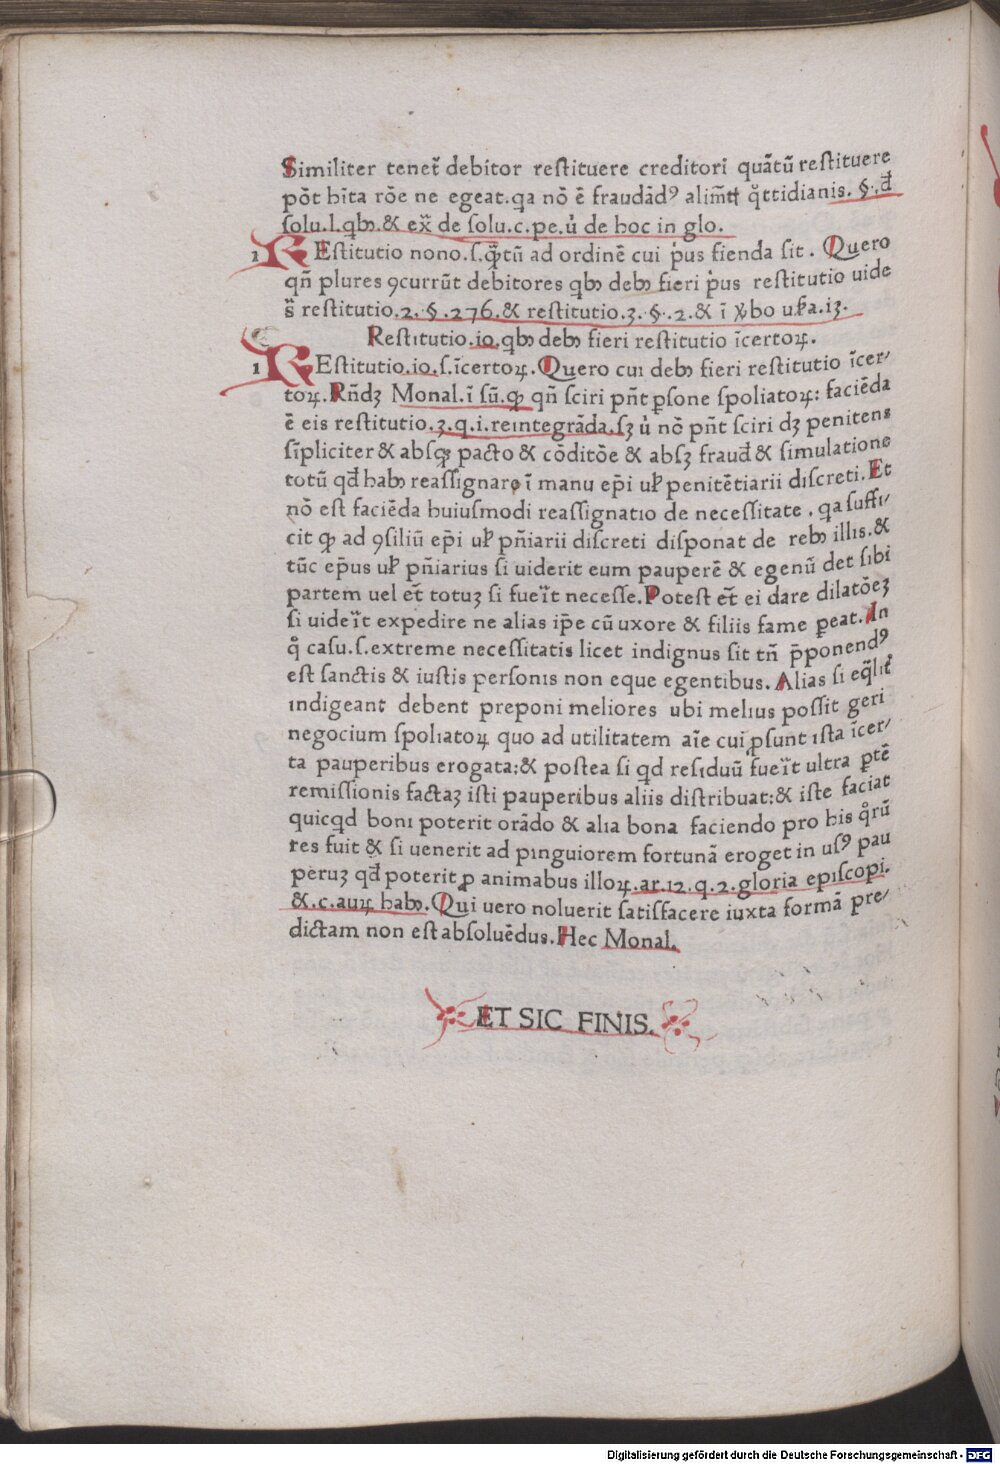 Similiter tenet᷑ debitor reſtituere creditori quãtũ reſtituere
põt hĩta rõe ne egeat.qa nõ ẽ fraudãdꝰ alim̃tꝭ q̊ttidianis. §.đ
ſolu.l.qbꝫ.& ex̃ de ſolu.c.pe.ủ de hoc in glo.
1 REſtitutio nono.ſ.q̃tũ ad ordinẽ cui p̉us fienda ſit . Quero
qñ plures ꝯcurrũt debitores qbꝫ debꝫ fieri p̉us reſtitutio uide
s̃ reſtitutio.2. §.276.& reſtitutio.3. §.2.& ĩ ꝟbo uſꝛa.i3.
Reſtitutio.io.qbꝫ debꝫ fieri reſtitutio ĩcertoꝝ.
1 REſtitutio.io.ſ.ĩcertoꝝ.Quero cui debꝫ fieri reſtitutio ĩcer/
toꝝ.Rñdꝫ Monal.ĩ ſũ.ꝙ qñ ſciri pñt ꝑſone ſpoliatoꝝ: faciẽda
ẽ eis reſtitutio.3.q.i.reintegrãda.ſꝫ ủ nõ pñt ſciri dꝫ penitens
ſĩpliciter & abſqꝫ pacto & cõditõe & abſꝫ frauđ & ſimulatione
totũ qđ habꝫ reaſſignare ĩ manu ep̃i uł penitẽtiarii diſcreti.Et
nõ eſt faciẽda huiuſmodi reaſſignatio de neceſſitate . qa ſuffi/
cit ꝙ ad ꝯſiliũ ep̃i uł pñiarii diſcreti diſponat de rebꝫ illis.&
tũc ep̃us uł pñiarius ſi uiderit eum pauperẽ & egenũ det ſibi
partem uel et̃ totuꝫ ſi fueĩt neceſſe.Poteſt et̃ ei dare dilatõeꝫ
ſi uideĩt expedire ne alias ip̃e cũ uxore & filiis fame ꝑeat.In
q̊ caſu.ſ.extreme neceſſitatis licet indignus ſit tñ p̃ponendꝰ
eſt ſanctis & iuſtis perſonis non eque egentibus.Alias ſi eq̃lit᷑
indigeant debent preponi meliores ubi melius poſſit geri
negocium ſpoliatoꝝ quo ad utilitatem aĩe cui ꝓſunt iſta ĩcer/
ta pauperibus erogata:& poſtea ſi qd reſiduũ fueĩt ultra ꝑtẽ
remiſſionis factaꝫ iſti pauperibus aliis diſtribuat:& iſte faciat
quicqd boni poterit orãdo & alia bona faciendo pro his q̊rũ
res fuit & ſi uenerit ad pinguiorem fortunã eroget in uſꝰ pau
peruꝫ qđ poterit ꝓ animabus illoꝝ.ar.12.q.2.gloria epiſcopi.
&.c.auꝝ habꝫ.Qui uero noluerit ſatiſfacere iuxta formã pre/
dictam non eſt abſoluẽdus.Hec Monal.
ET SIC FINIS.
Digitalisierung gefördert durch die Deutsche Forschungsgemeinschaft - DFG